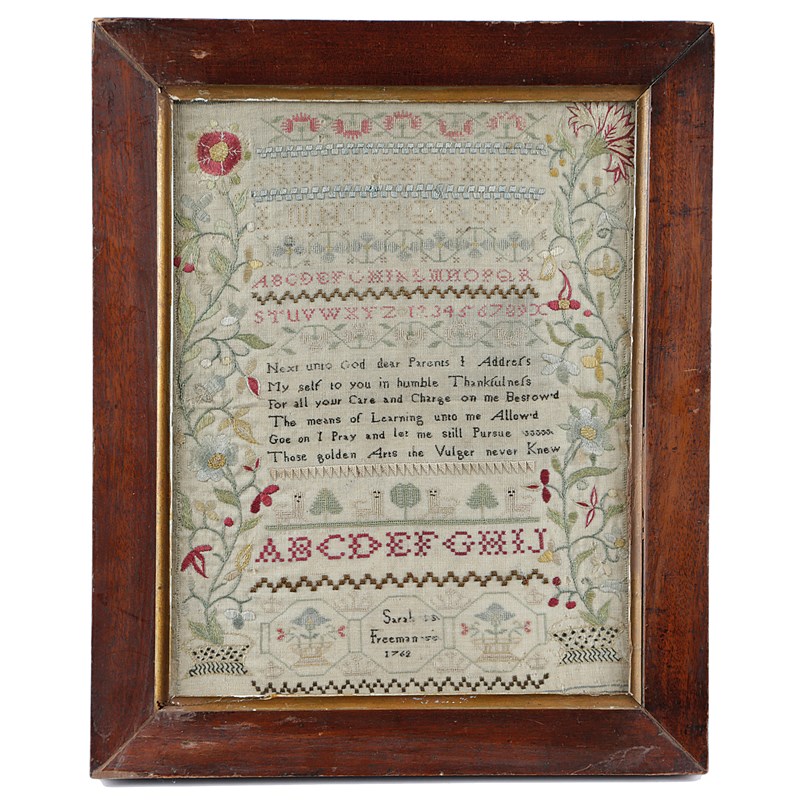 ABCDEFGHIKLMNOPQR
STUVWXYZ 123456789X
Next unto God dear Parents I Addreſs
My self to you in humble Thankfulneſs
For all your Care and Charge on me Bestow'd
The means of Learning unto me Allow'd
Goe on I Pray and let me still Pursue
Those golden Arts the Vulger never Knew
ABCDEFGHIJ
Sarah
Freeman
1762